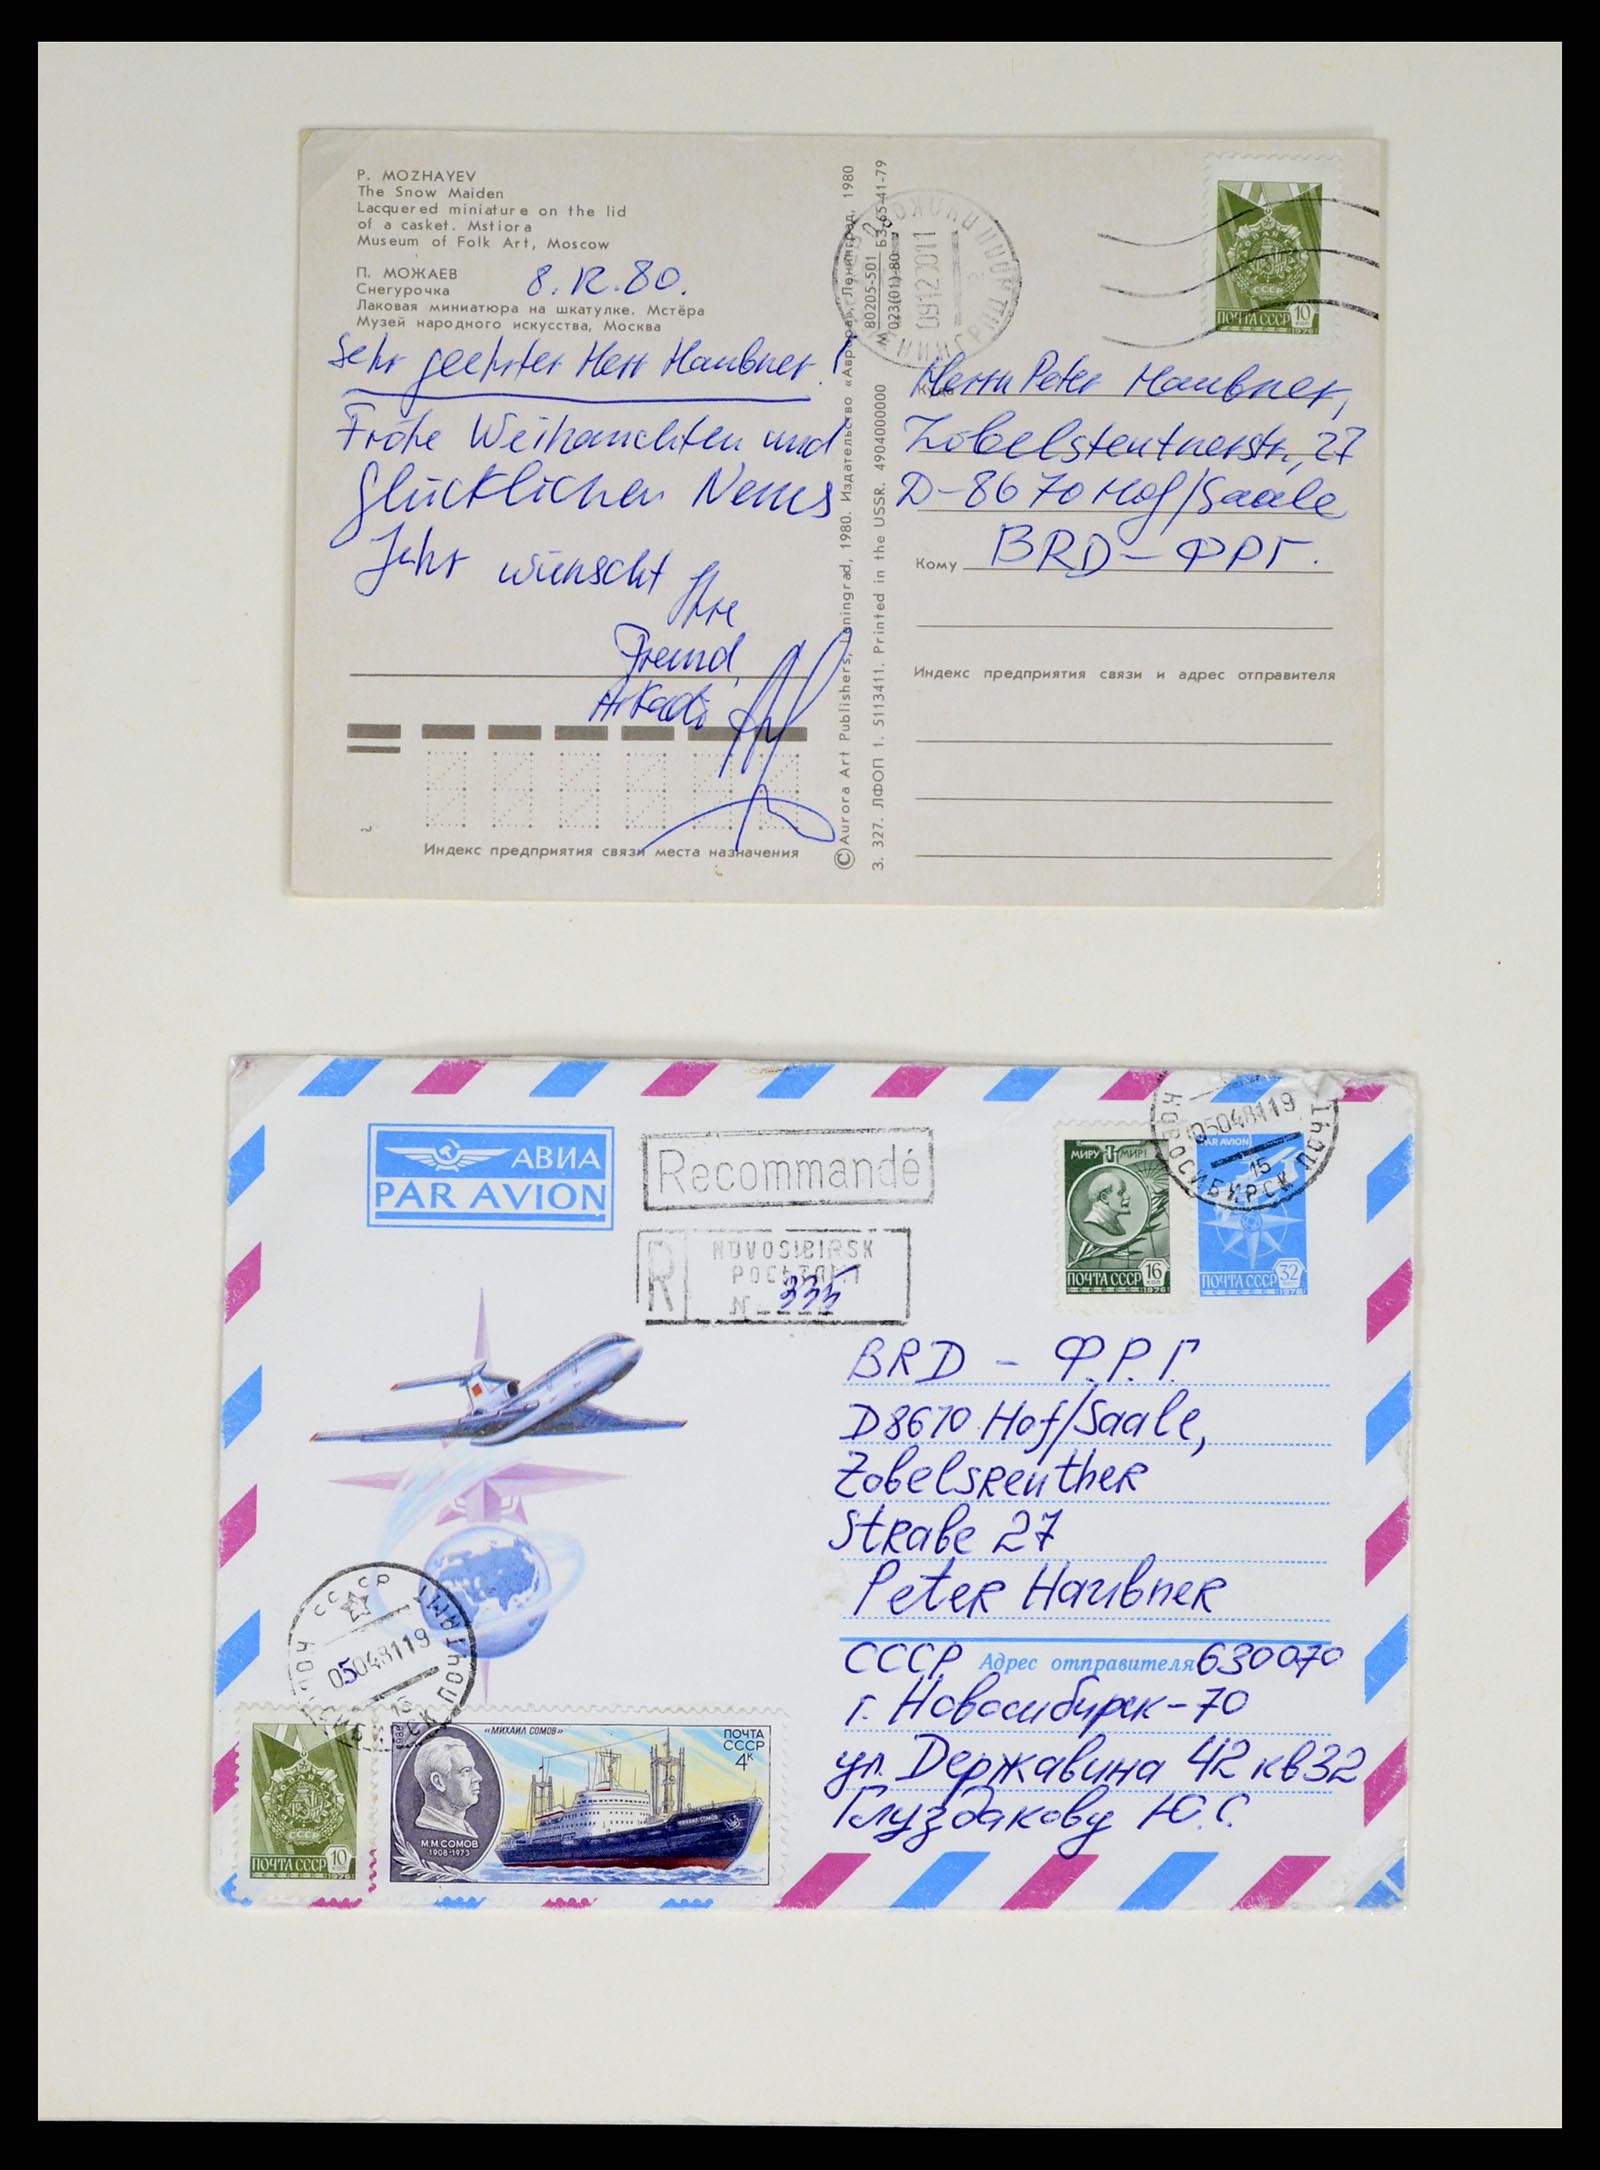 P. MOZHAYEV
The Snow Maiden
Lacquered miniature on the lid
of a casket. Mstiora
Museum of Folk Art, Moscow
П. МОЖАЕВ
Снегурочка
Лаковая миниатюра на шкатулке. Мстёра
Музей народного искусства, Москва
8. XII. 80.
Sehr geehrter Herr Haubner!
Frohe Weihanchten und
glücklichen Neues
Jahr wünscht Ihre
Freund,
Arkadi
Индекс предприятия связи места назначения
© Aurora Art Publishers, Leningrad, 1980. Издательство «Аврора», Ленинград, 1980
З. 327. ЛФОП 1. 5113411. Printed in the USSR. 4904000000
80205-501
М 023(01)-80
БЗ-65-41-79
09128011
ПОЧТА СССР 10 коп
1976
СССР
Herrn Peter Haubner,
Zobelsteutnerstr., 27
D-8670 Hof/Saale
Кому BRD-ФРГ.
Индекс предприятия связи и адрес отправителя
АВИА
PAR AVION
Recommandé
R NOVOSIBIRSK
N 335
МИРУ МИР!
ПОЧТА СССР 16 коп
1976
PAR AVION
ПОЧТА СССР 32 коп
1978
НОВОСИБИРСК ПОЧТ
050481119
15
BRD - Ф.Р.Г.
D8670 Hof/Saale,
Zobelsreuther
Straße 27
Peter Haubner
СССР Адрес отправителя 630070
г. Новосибирск-70
ул. Державина 42 кв 32
Глуздакову Ю.С.
СССР
050481119
15
ПОЧТА СССР 10 коп
1976
СССР
1980
«МИХАИЛ СОМОВ»
ПОЧТА
СССР
4к
М.М.СОМОВ
1908-1973
МИХАИЛ СОМОВ